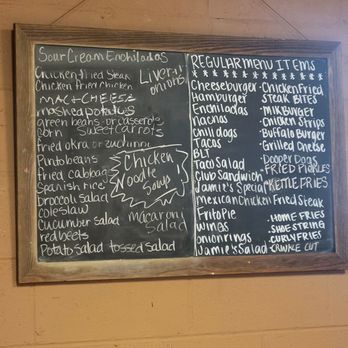 Sour Cream Enchiladas
Chicken Fried Steak
Chicken Fried Chicken
Liver n' onions
MAC + CHEESE
mashed potatoes
green beans or casserole
Corn Sweet Carrots
fried okra or zucchini
Pinto beans
fried cabbage
Spanish rice
broccoli salad
coleslaw
Cucumber salad
red beets
Potato salad tossed salad
Chicken
Noodle
Soup!
macaroni
Salad
REGULAR MENU ITEMS
Cheeseburger
Hamburger
Enchiladas
nachos
Chili dogs
Tacos
BLT
Taco Salad
Club Sandwich
Jamie's Special
Mexican Chicken Fried Steak
Frito Pie
wings
onion rings
Jamie's Salad
• Chicken Fried
STEAK BITES
• MLK BURGER
• Chicken Strips
• Buffalo Burger
• Grilled Cheese
• Dooper Dogs
FRIED PICKLES
• KETTLE FRIES
• HOME FRIES
• SHOE STRING
• CURLY FRIES
• CRINKLE CUT